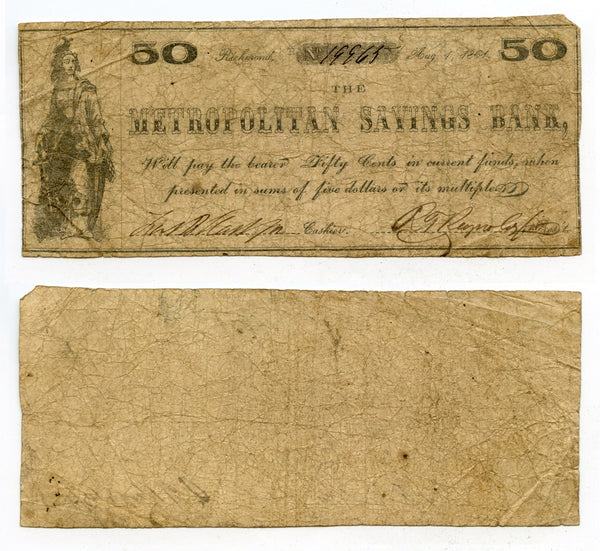 50 Richmond, No. 14965 Aug 1, 1861. 50
THE
METROPOLITAN SAVINGS BANK,
Will pay the bearer Fifty Cents in current funds, when
presented in sums of five dollars or its multiple
Cashier.